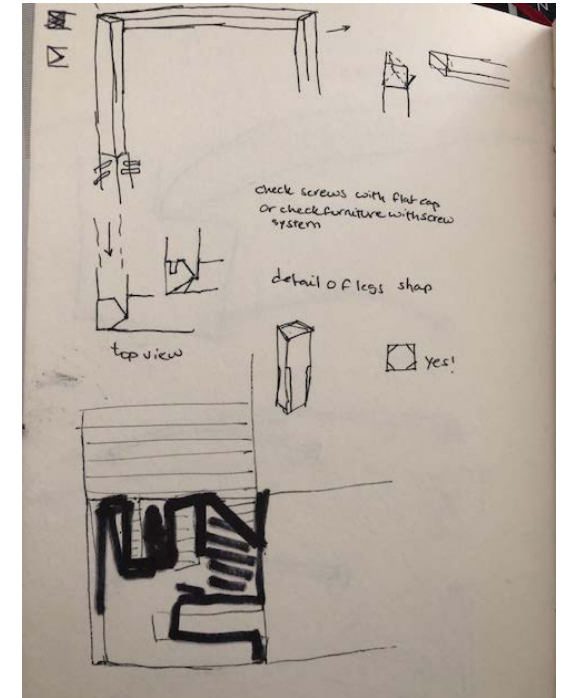 check screws with flat cap
or check furniture with screw
system
detail of legs shap
top view
yes!